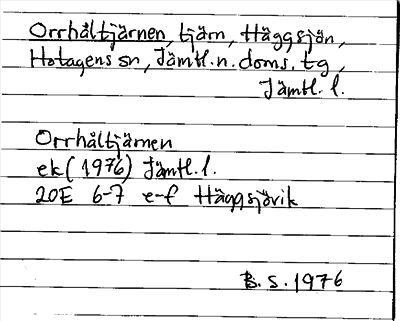 Orrhåltjärnen, tjärn, Häggsjön,
Hotagens sn, Jämtl. n. doms. tg,
Jämtl. l.
Orrhåltjärnen
ek (1976) Jämtl. l.
20E 6-7 e-f Häggsjövik
B. S. 1976